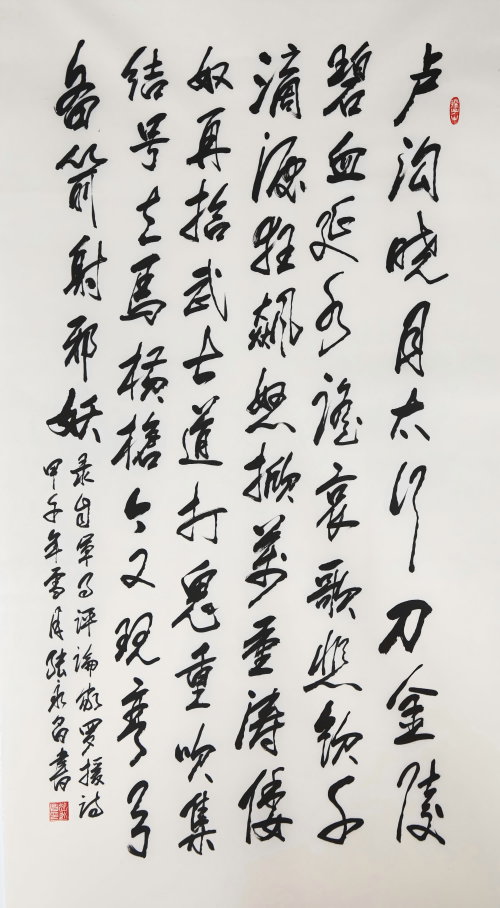 卢沟晓月太行刀金陵
碧血延水谣哀歌悲饮千
滴酒狂飙怒掀萬重涛倭
奴再拾武士道打鬼重吹集
结号立马横槍今又现弯弓
备箭射邪妖
录自军事评论家罗援诗
甲午年雪月张永昌书